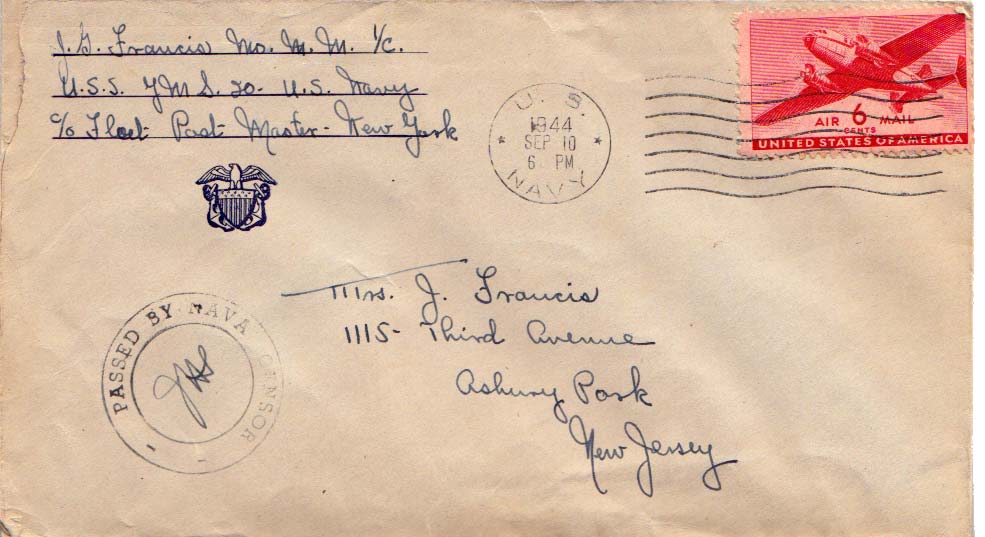 J. G. Francis Mo. M. M. 1/c.
U.S.S. YMS. 20 - U.S. Navy
c/o Fleet Post Master - New York
U. S.
1944
SEP 10
6 PM
NAVY
AIR 6 MAIL
CENTS
UNITED STATES OF AMERICA
Mrs. J. Francis
1115 - Third Avenue
Asbury Park
New Jersey
PASSED BY NAVA CENSOR